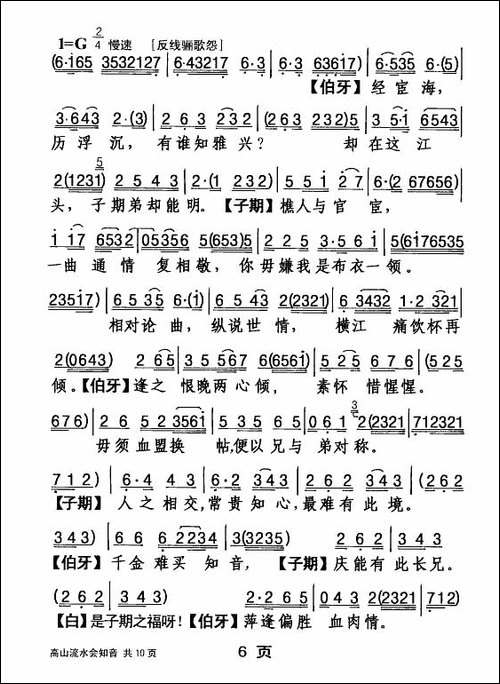 1=G 2/4 慢速 [反线骊歌怨]
(6·i65 3532127 | 6·43217 6·3 | 6·3 63617) | 6·535 6·(5) |
【伯牙】经宦海,
3·643 2·(3) | 2 6 3 232 | (263 232) 5 | 3 5·i 6543 |
历浮沉, 有谁知雅兴? 却在这江
5
2(1231) | 2 5 4 3 | 2·(1 232) | 5 5 i 27 | 6·(27656) |
头, 子期弟却能明。【子期】樵人与官宦,
i i7 6532 | 05356 5(653)5 | 2 2 5 3·5 6 i | 5(6176535 |
一曲通情 复相敬, 你毋嫌我是布衣一领。
23517) | 6 5 3 5 6·(i) | 6 5 4 3 2(2321) | 6 3432 1·2 321 |
相对论曲, 纵说世情, 横江痛饮杯再
2(0643) 2 65 | 3 5 567 6(656i) | 5 2 5 6 7 6 | (525
倾。【伯牙】逢之 恨晚两心倾, 素怀 惜惺惺。
676) | 2 6 5 2 3561 | 5 3 5 6 5 | 0 6 1 3 2(2321 | 712321
毋须血盟换 帖,便以兄与 弟对称。
712) | 6·4 4 3 | 6·2 343 | 2 6 2 343 | (262
【子期】人之相交,常贵知心,最难有此境。
343) | 6 6 6 2234 | 3(3235) 262 | 343
【伯牙】千金难买 知音, 【子期】庆能有此长兄。
(262 343) 2·26 5 | 2 6 343 2(2321 | 712)
【白】是子期之福呀!【伯牙】萍逢偏胜 血肉情。
高山流水会知音 共10页 6 页